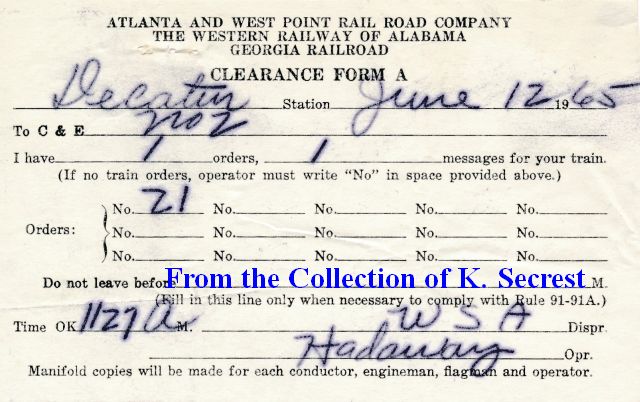 ATLANTA AND WEST POINT RAIL ROAD COMPANY
THE WESTERN RAILWAY OF ALABAMA
GEORGIA RAILROAD
CLEARANCE FORM A
Decatur Station June 12 1965
To C & E No 2
I have 1 orders, 1 messages for your train.
(If no train orders, operator must write "No" in space provided above.)
Orders:
No. 21 No. No. No. No.
No. No. No. No. No.
No. No. No. No. No.
Do not leave before From the Collection of K. Secrest M.
(Fill in this line only when necessary to comply with Rule 91-91A.)
Time OK 1127 A M. W S A Dispr.
Hadaway Opr.
Manifold copies will be made for each conductor, engineman, flagman and operator.